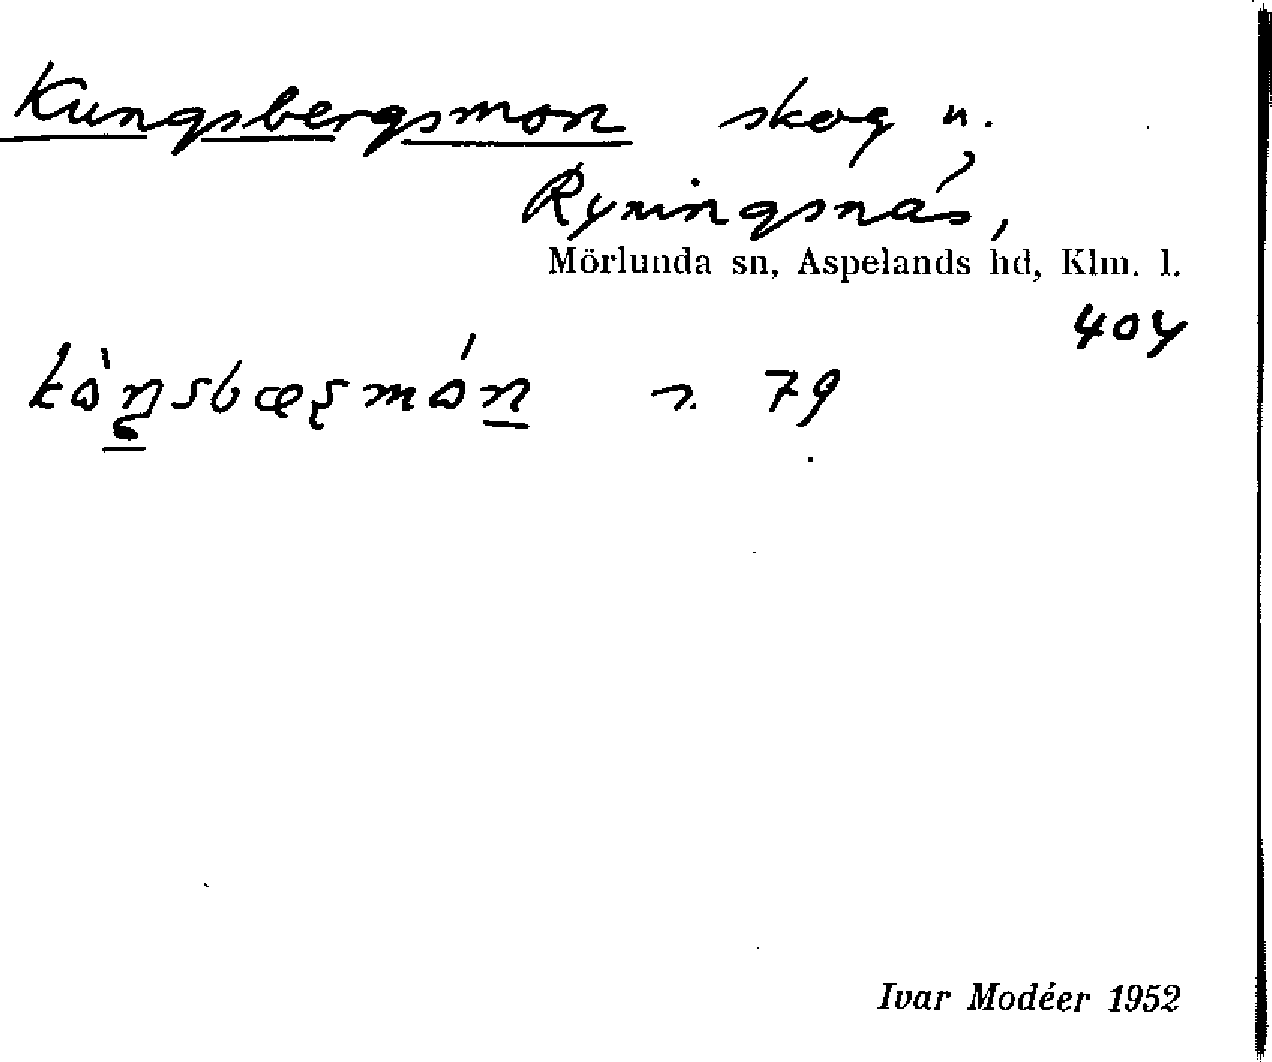 Kungsbergsmon skog u.
Ryningsnäs,
Mörlunda sn, Aspelands hd, Klm. l.
404
r. 79
Ivar Modéer 1952